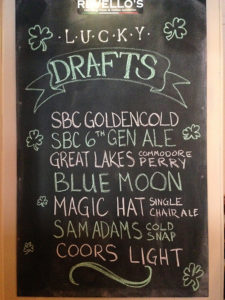 REVELLO'S
LUCKY
DRAFTS
SBC GOLDENCOLD
SBC 6TH GEN ALE
GREAT LAKES COMMODORE PERRY
BLUE MOON
MAGIC HAT SINGLE CHAIR ALE
SAM ADAMS COLD SNAP
COORS LIGHT